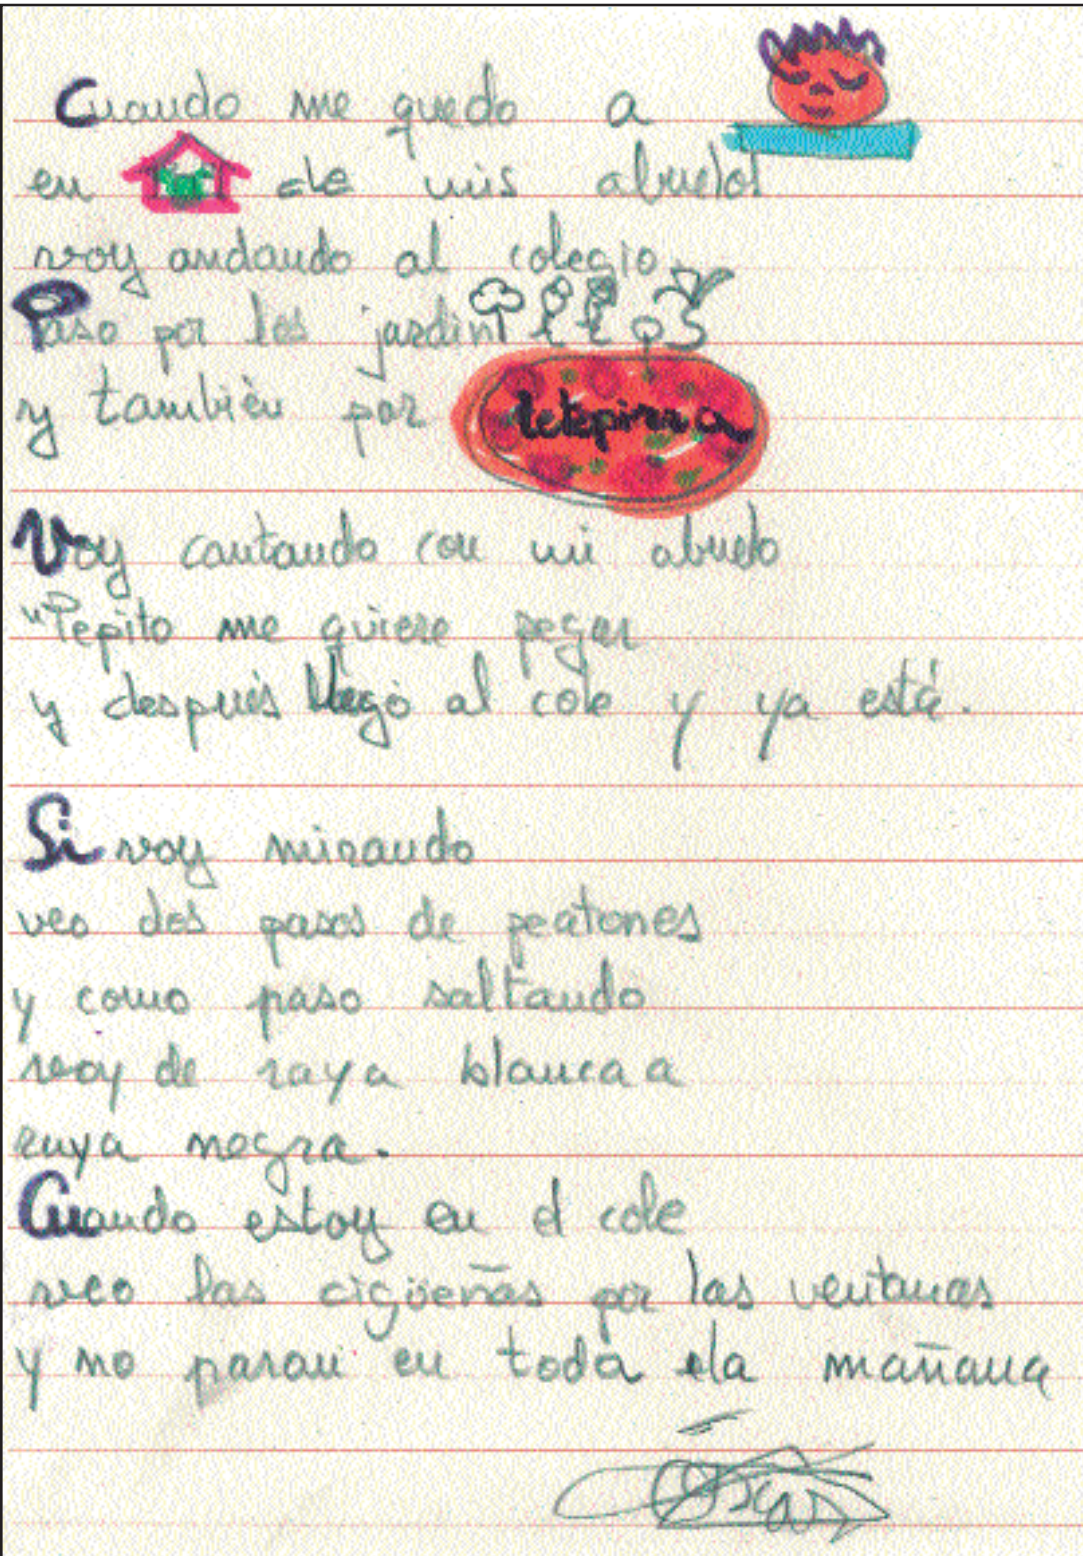 Cuando me quedo a
en de mis abuelos
voy andando al colegio.
Paso por los jardin
y también por telepizza
Voy cantando con mi abuelo
"Pepito me quiere pegar
y después llegó al cole y ya está.
Si voy mirando
veo dos pasos de peatones
y como paso saltando
voy de raya blanca a
raya negra.
Cuando estoy en el cole
veo las cigüeñas por las ventanas
y no paran en toda la mañana
Óscar